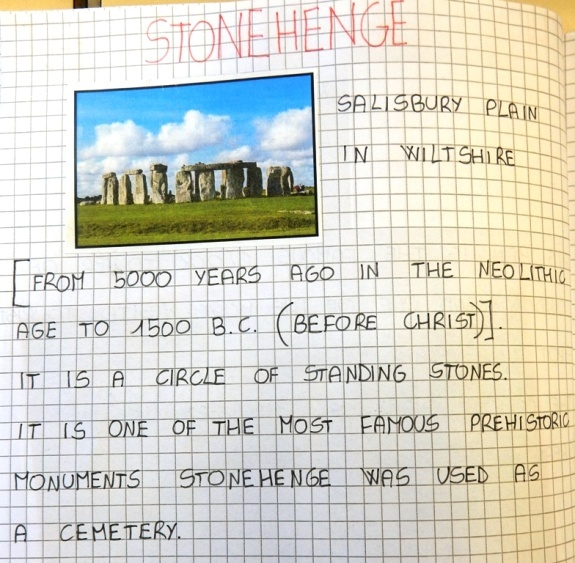 STONEHENGE
SALISBURY PLAIN
IN WILTSHIRE
[FROM 5000 YEARS AGO IN THE NEOLITHIC
AGE TO 1500 B.C. (BEFORE CHRIST)].
IT IS A CIRCLE OF STANDING STONES.
IT IS ONE OF THE MOST FAMOUS PREHISTORIC
MONUMENTS STONEHENGE WAS USED AS
A CEMETERY.